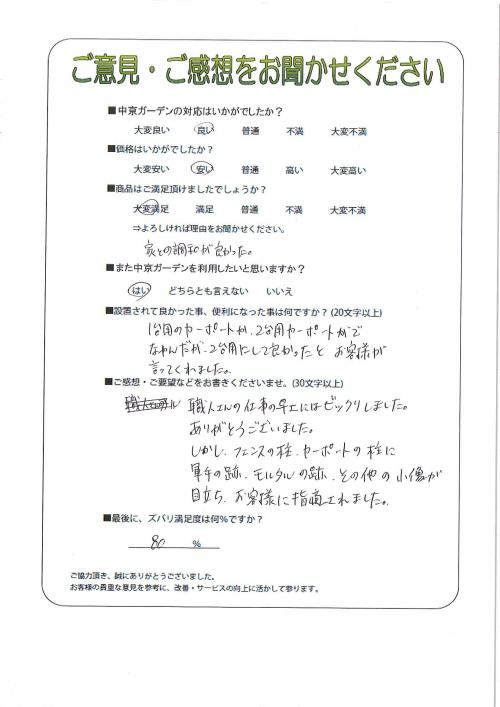 ご意見・ご感想をお聞かせください
■中京ガーデンの対応はいかがでしたか？
大変良い 良い 普通 不満 大変不満
■価格はいかがでしたか？
大変安い 安い 普通 高い 大変高い
■商品はご満足頂けましたでしょうか？
大変満足 満足 普通 不満 大変不満
⇒よろしければ理由をお聞かせください。
家との調和が良かった。
■また中京ガーデンを利用したいと思いますか？
はい どちらとも言えない いいえ
■設置されて良かった事、便利になった事は何ですか？(20文字以上)
1台用のカーポートか、2台用カーポートかで
なやんだが、2台用にして良かったと お客様が
言ってくれました。
■ご感想・ご要望などをお書きくださいませ。(30文字以上)
職人さんの仕事の早さにはビックリしました。
ありがとうございました。
しかし、フェンスの柱、カーポートの柱に
軍手の跡、モルタルの跡、その他の小傷が
目立ち、お客様に指摘されました。
■最後に、ズバリ満足度は何％ですか？
80 ％
ご協力頂き、誠にありがとうございました。
お客様の貴重な意見を参考に、改善・サービスの向上に活かして参ります。